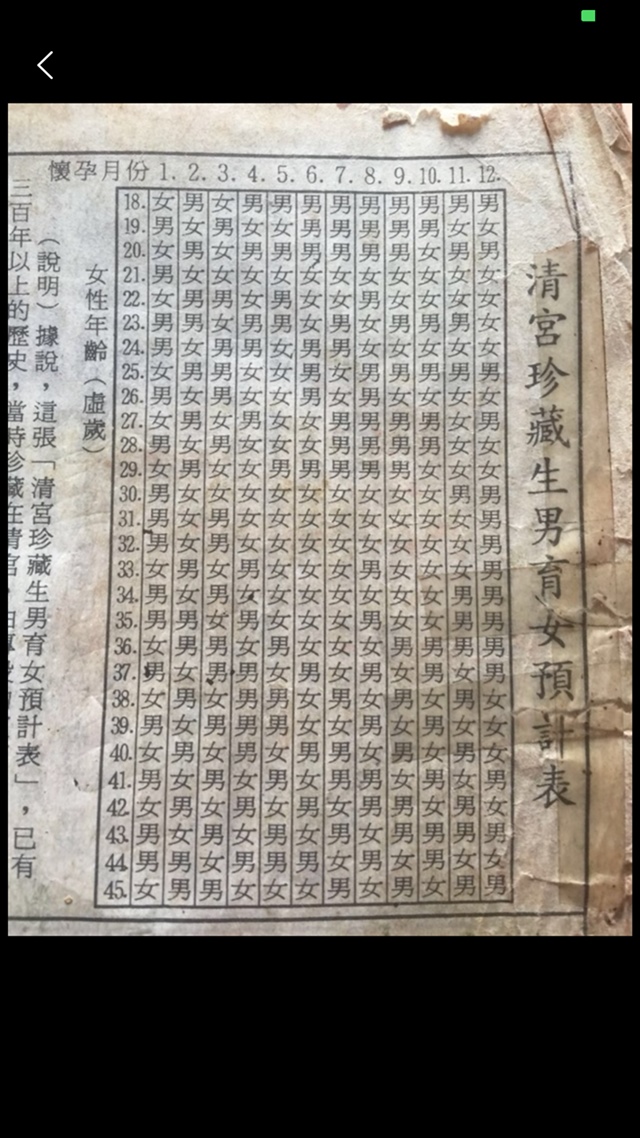 清宮珍藏生男育女預計表
懷孕月份 1. 2. 3. 4. 5. 6. 7. 8. 9. 10. 11. 12.
女性年齡（虛歲）
18. 女男女男男男男男男男男男
19. 男女男女女男男男男男女女
20. 女男女男男男男男男女男男
21. 男女女女女女女女女女女女
22. 女男男女男女女男女女女女
23. 男男女男男女男女男男男女
24. 男女男男女男男女女女女女
25. 女男男女女男女男男男男男
26. 男女男女女男女男女女女女
27. 女男女男女女男男男男女男
28. 男女男女女女男男男男女女
29. 女男女女男男男男男女女女
30. 男女女女女女女女女女男男
31. 男女男女女女女女女女女男
32. 男女男女女女女女女女女男
33. 女男女男女女女男女女女男
34. 男女男女女女女女女女男男
35. 男男女男女女女男女女男男
36. 女男男女男女女女男男男男
37. 男女男男女男女男女男女男
38. 女男女男男女男女男女男女
39. 男女男男男女女男女男女女
40. 女男女男女男男女男女男女
41. 男女男女男女男男女男女男
42. 女男女男女男女男男女男女
43. 男男男女男女男女男女男男
44. 男男女女女男女男女男女女
45. 女男男女女女男女男女男男
（說明）據說，這張「清宮珍藏生男育女預計表」，已有
三百年以上的歷史，當時珍藏在清宮